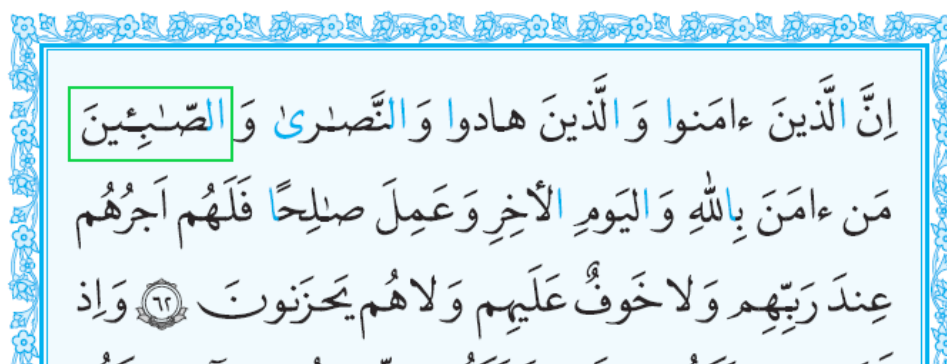 اِنَّ الَّذينَ ءامَنوا وَ الَّذينَ هادوا وَ النَّصـٰرىٰ وَ الصّـٰبِـٔينَ
مَن ءامَنَ بِاللّٰهِ وَ اليَومِ الأخِرِ وَ عَمِلَ صـٰلِحًا فَلَهُم اَجرُهُم
عِندَ رَبِّهِم وَ لا خَوفٌ عَلَيهِم وَ لا هُم يَحزَنونَ ﴿٦٢﴾ وَ اِذ